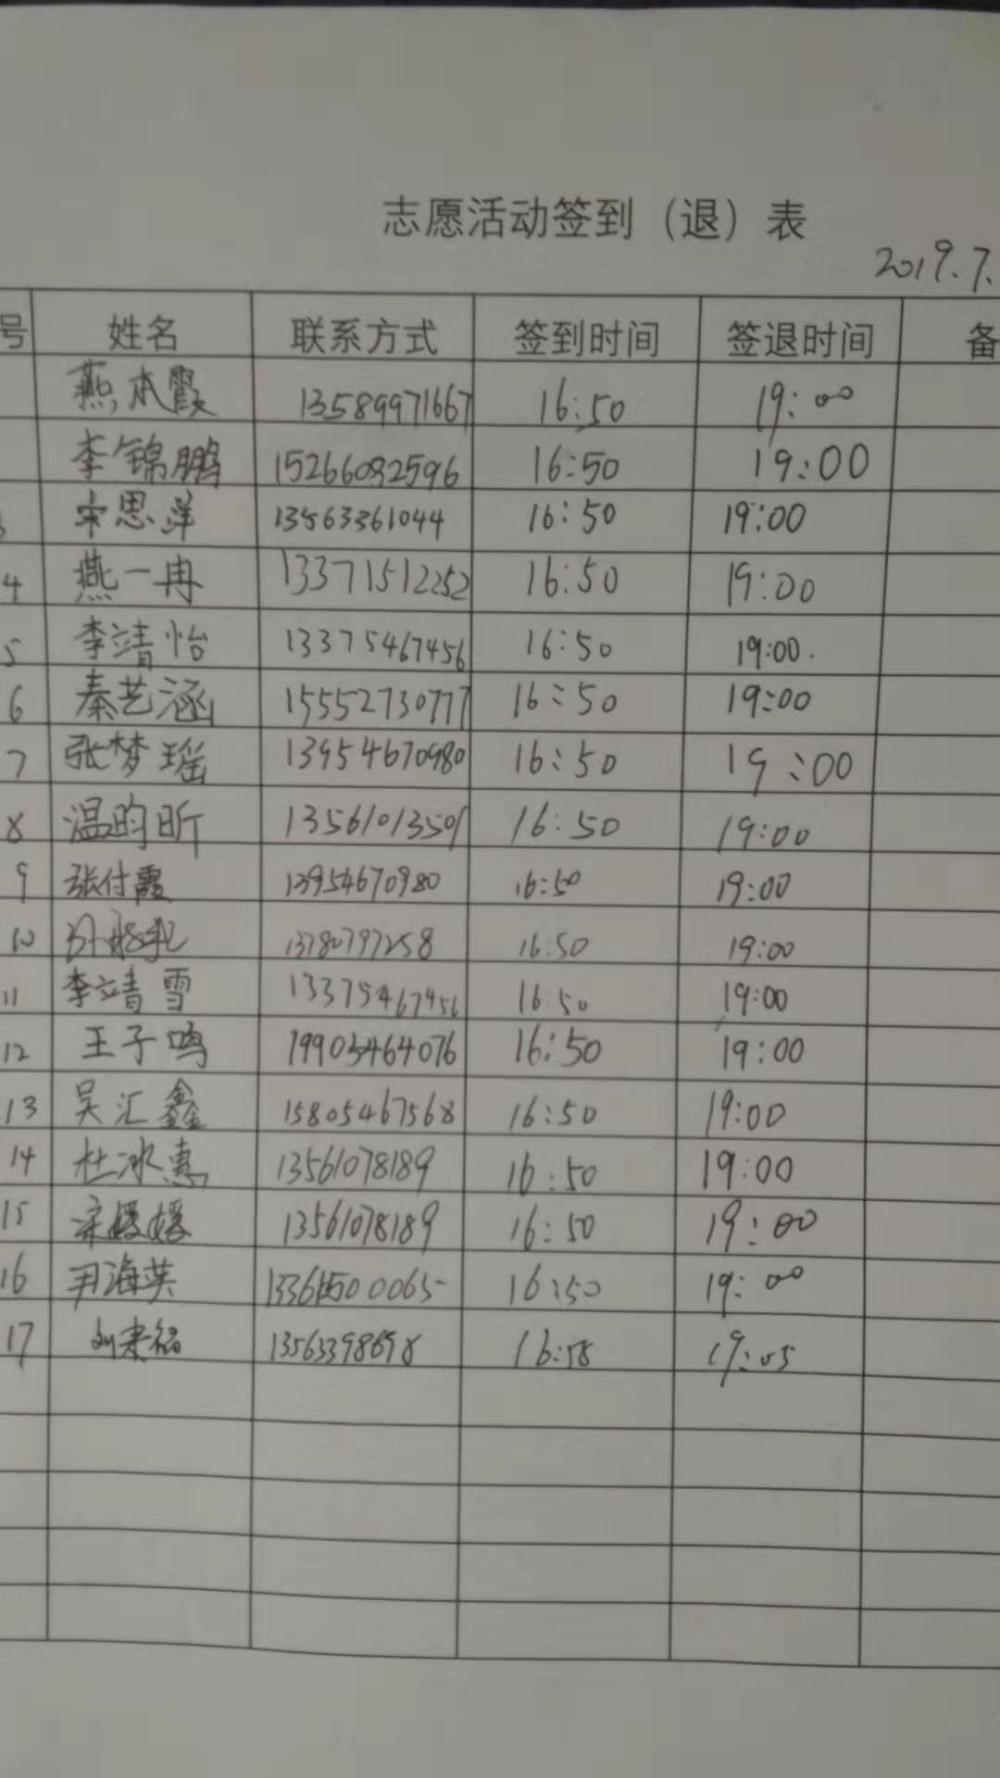 志愿活动签到（退）表
2019.7.
号 姓名 联系方式 签到时间 签退时间 备
燕本霞 13589971667 16:50 19:00
李锦鹏 15266032596 16:50 19:00
宋思洋 13563361044 16:50 19:00
4 燕一冉 13371512252 16:50 19:00
5 李靖怡 13375467456 16:50 19:00.
6 秦艺涵 15552730777 16:50 19:00
7 张梦瑶 13954670980 16:50 19:00
8 温昀昕 13561013501 16:50 19:00
9 张付霞 13954670980 16:50 19:00
10 13780797258 16:50 19:00
11 李靖雪 13375467456 16:50 19:00
12 王子鸣 19903464076 16:50 19:00
13 吴汇鑫 15805467568 16:50 19:00
14 杜冰惠 13561078189 16:50 19:00
15 13561078189 16:50 19:00
16 尹海英 16:50 19:00
17 13563398698 16:58 19:05